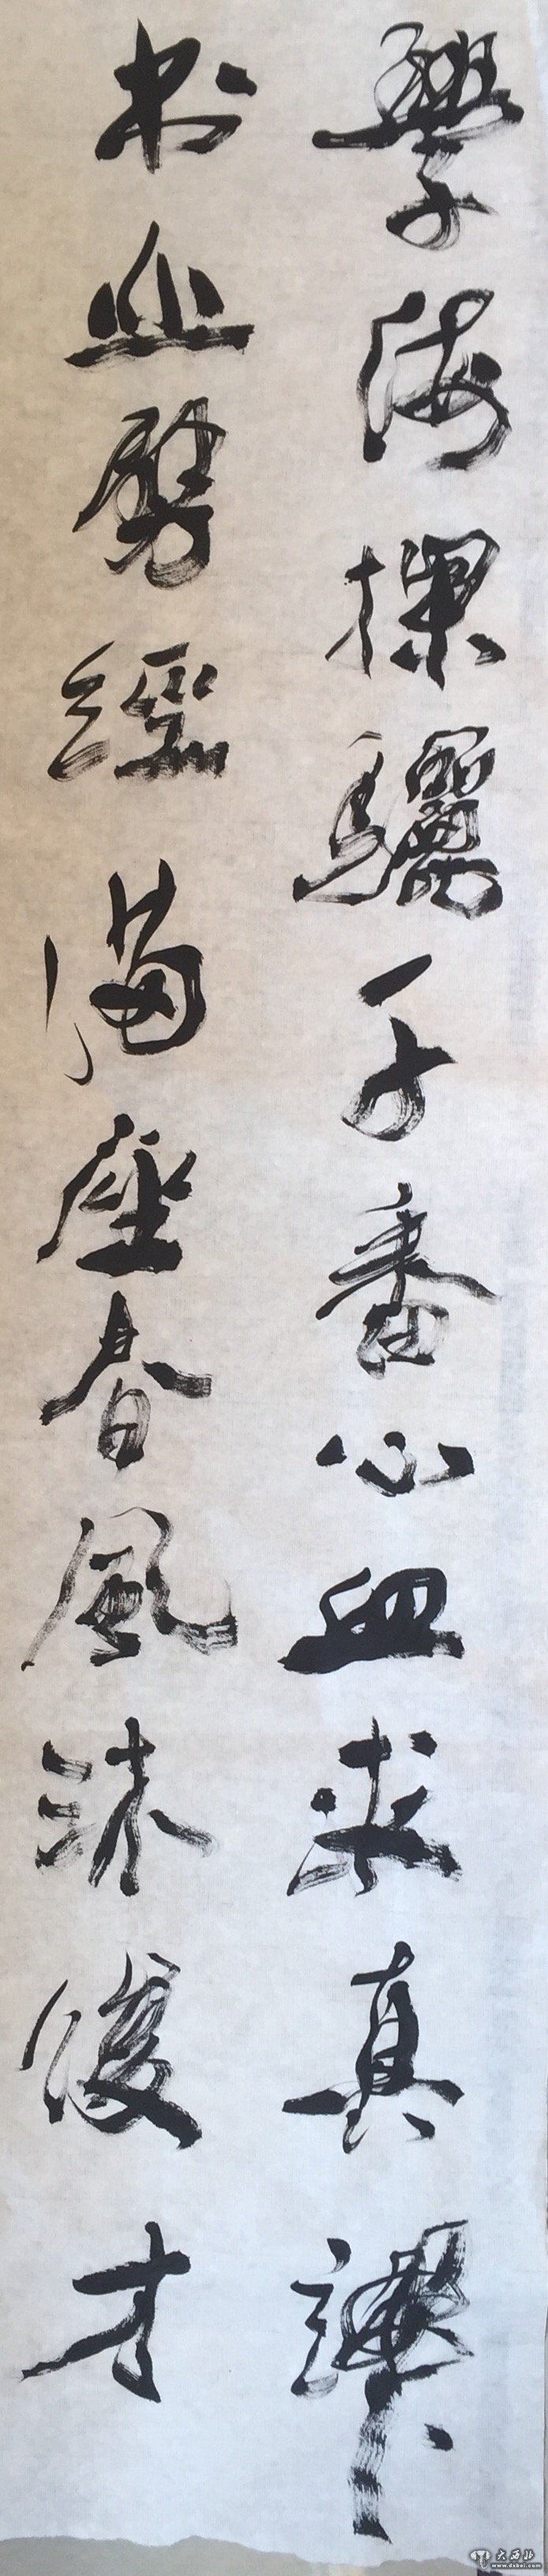 學海探驪千番心血求真諦
书山劈經滿座春風沐俊才
大西北
www.dxbei.com